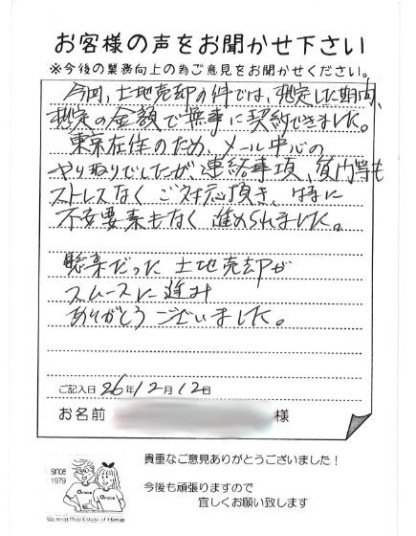 お客様の声をお聞かせ下さい
※今後の業務向上の為ご意見をお聞かせください。
今回、土地売却の件では、想定した期間、
想定の金額で無事に契約できました。
東京在住のため、メール中心の
やり取りでしたが、連絡事項、質問等も
ストレスなく ご対応頂き、特に
不安要素もなく 進められました。
懸案だった 土地売却が
スムースに進み
ありがとうございました。
ご記入日 26年12月12日
お名前 様
貴重なご意見ありがとうございました！
今後も頑張りますので
宜しくお願い致します
since
1979
Grace
Grace